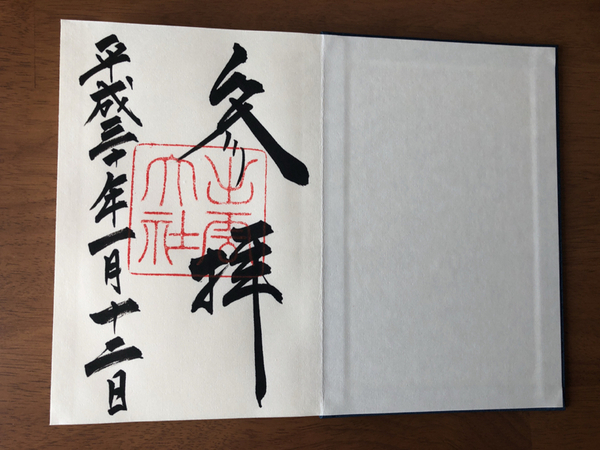 参拝
出雲大社
平成三十年一月十二日